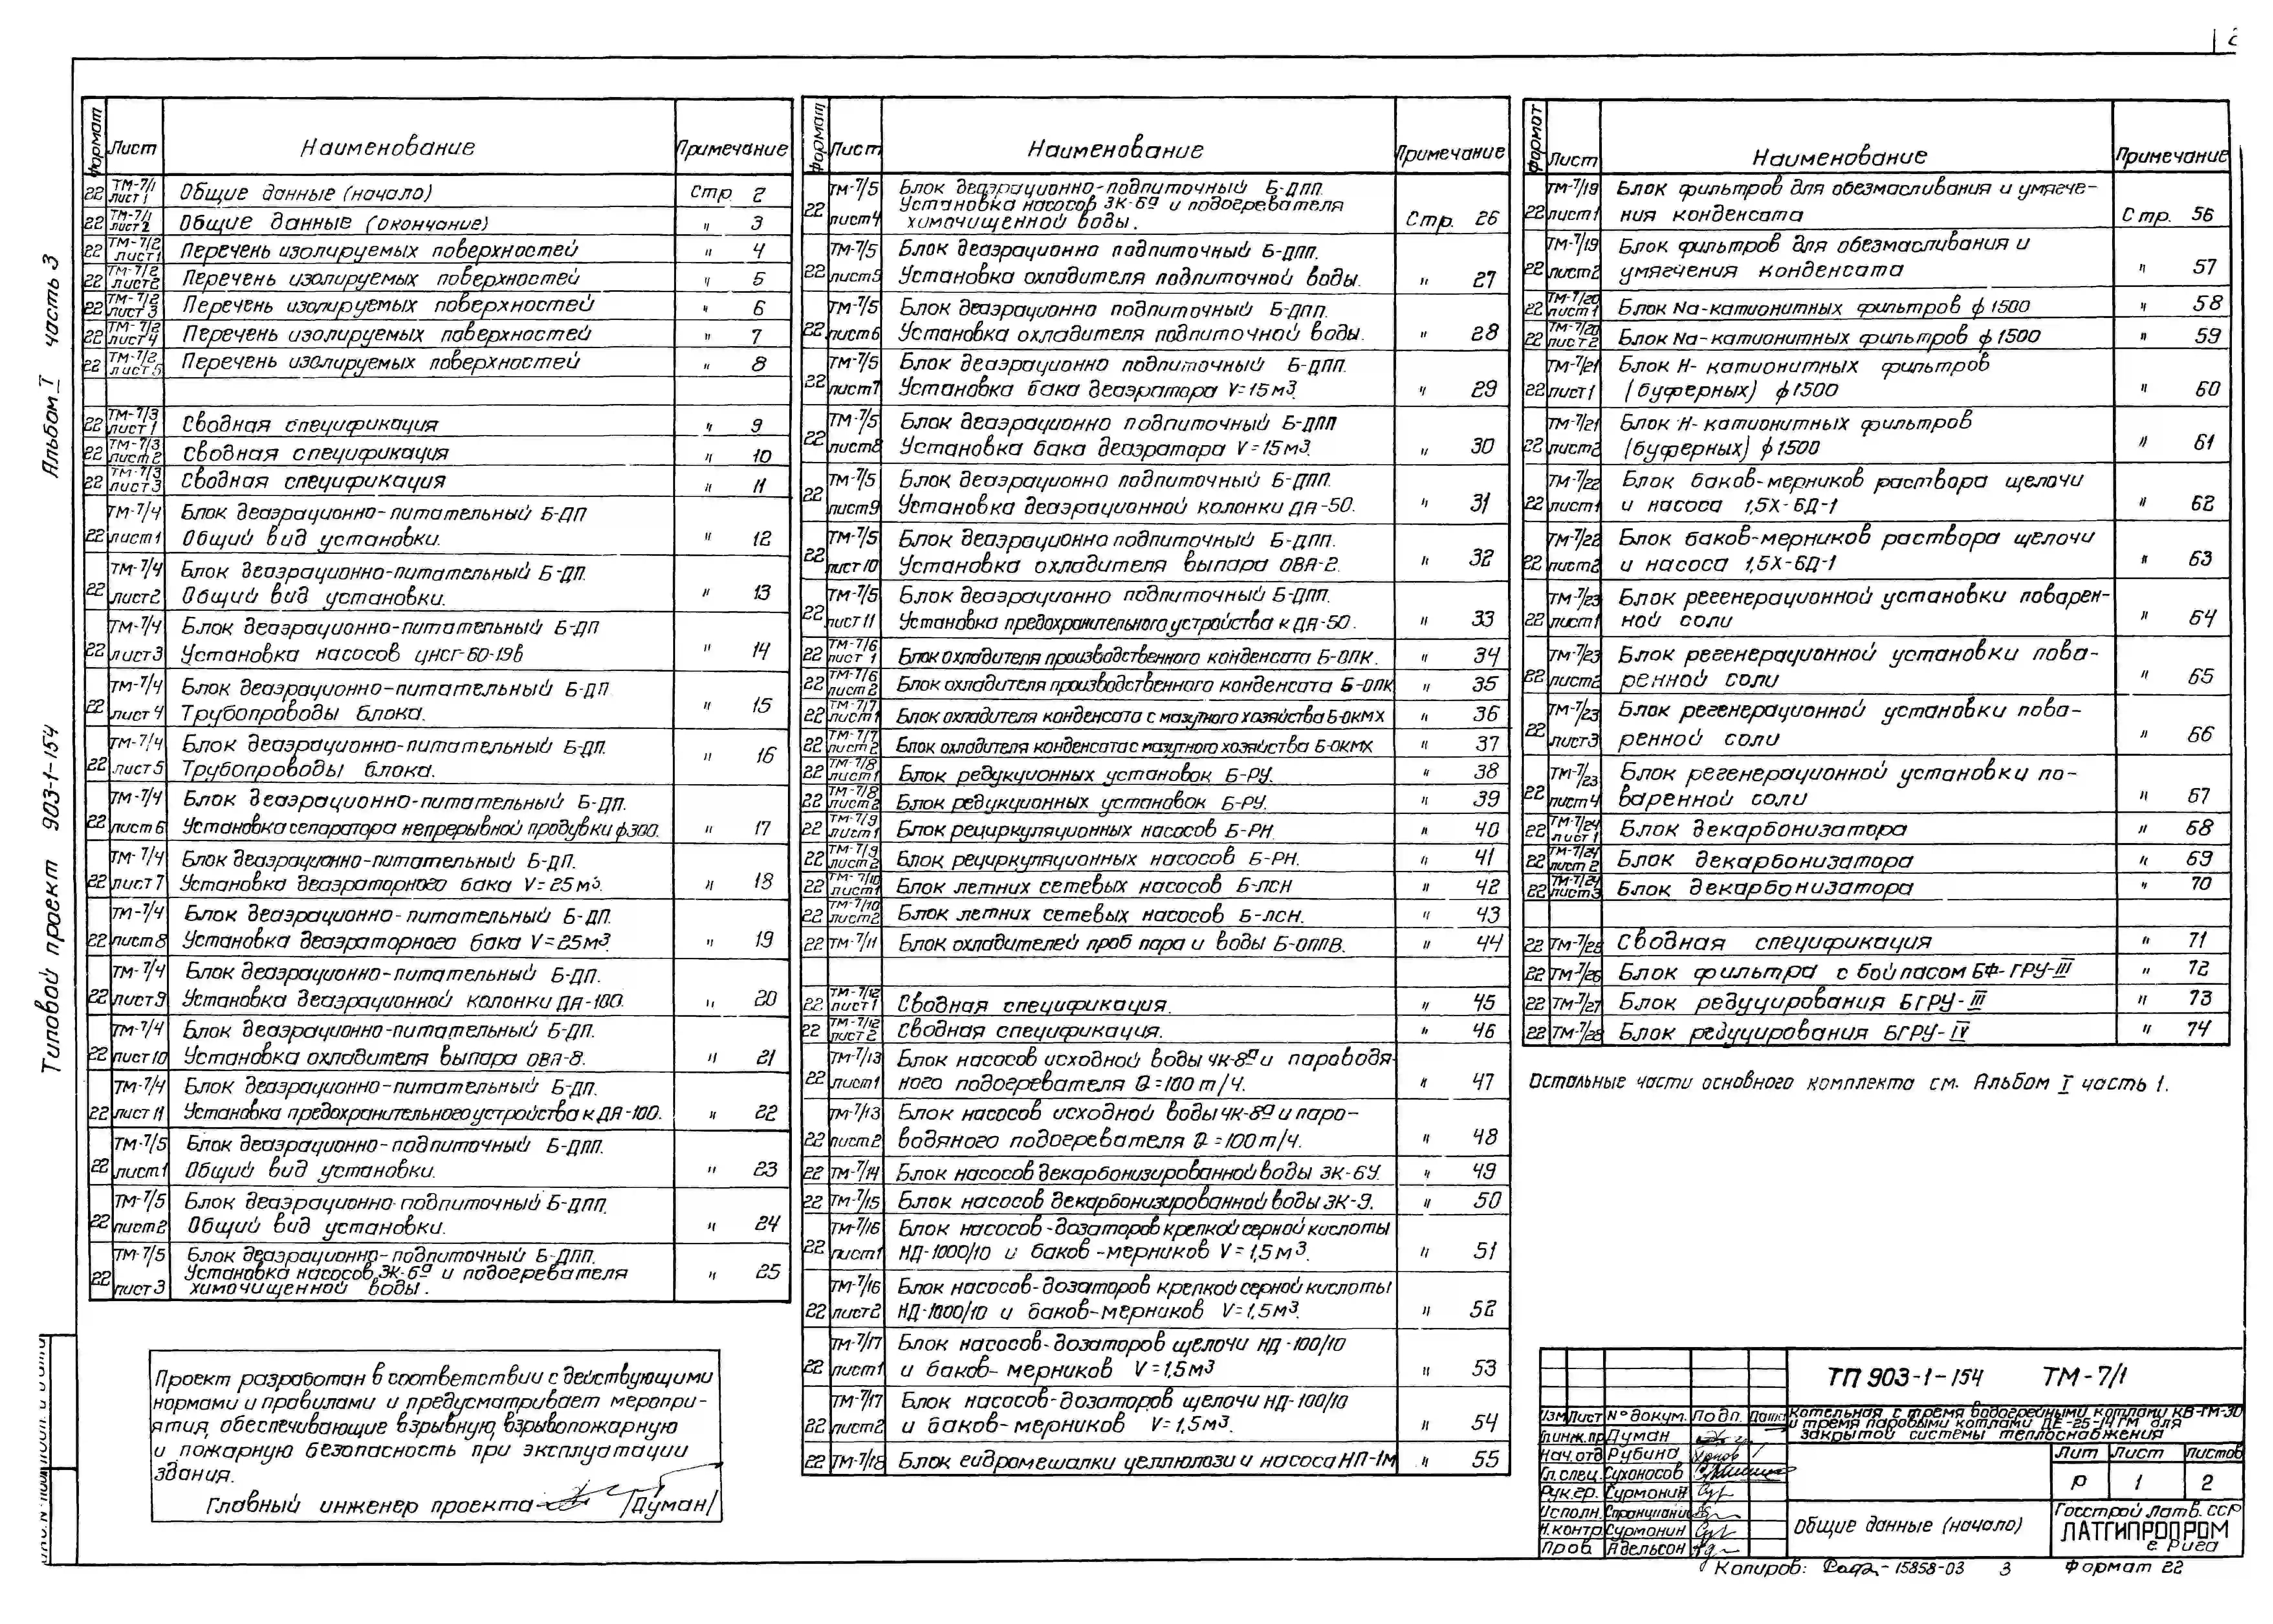 2
Альбом I часть 3
Типовой проект 903-1-154
Формат Лист Наименование Примечание
22 ТМ-7/1 лист 1 Общие данные (начало) Стр. 2
22 ТМ-7/1 лист 2 Общие данные (окончание) " 3
22 ТМ-7/2 лист 1 Перечень изолируемых поверхностей " 4
22 ТМ-7/2 лист 2 Перечень изолируемых поверхностей " 5
22 ТМ-7/2 лист 3 Перечень изолируемых поверхностей " 6
22 ТМ-7/2 лист 4 Перечень изолируемых поверхностей " 7
22 ТМ-7/2 лист 5 Перечень изолируемых поверхностей " 8
22 ТМ-7/3 лист 1 Сводная спецификация " 9
22 ТМ-7/3 лист 2 Сводная спецификация " 10
22 ТМ-7/3 лист 3 Сводная спецификация " 11
ТМ-7/4 Блок деаэрационно-питательный Б-ДП
22 лист 1 Общий вид установки. " 12
ТМ-7/4 Блок деаэрационно-питательный Б-ДП.
22 лист 2 Общий вид установки. " 13
ТМ-7/4 Блок деаэрационно-питательный Б-ДП
22 лист 3 Установка насосов ЦНСГ-60-198 " 14
ТМ-7/4 Блок деаэрационно-питательный Б-ДП
22 лист 4 Трубопроводы блока. " 15
ТМ-7/4 Блок деаэрационно-питательный Б-ДП.
22 лист 5 Трубопроводы блока. " 16
ТМ-7/4 Блок деаэрационно-питательный Б-ДП.
22 лист 6 Установка сепаратора непрерывной продувки ф300. " 17
ТМ-7/4 Блок деаэрационно-питательный Б-ДП.
22 лист 7 Установка деаэраторного бака V=25м3. " 18
ТМ-7/4 Блок деаэрационно-питательный Б-ДП.
22 лист 8 Установка деаэраторного бака V=25м3. " 19
ТМ-7/4 Блок деаэрационно-питательный Б-ДП.
22 лист 9 Установка деаэрационной колонки ДА-100. " 20
ТМ-7/4 Блок деаэрационно-питательный Б-ДП.
22 лист 10 Установка охладителя выпара ОВА-8. " 21
ТМ-7/4 Блок деаэрационно-питательный Б-ДП.
22 лист 11 Установка предохранительного устройства к ДА-100. " 22
ТМ-7/5 Блок деаэрационно-подпиточный Б-ДПП.
22 лист 1 Общий вид установки. " 23
ТМ-7/5 Блок деаэрационно-подпиточный Б-ДПП.
22 лист 2 Общий вид установки. " 24
ТМ-7/5 Блок деаэрационно-подпиточный Б-ДПП.
22 Установка насосов 3К-6а и подогревателя " 25
лист 3 химочищенной воды.
Проект разработан в соответствии с действующими
нормами и правилами и предусматривает меропри-
ятия, обеспечивающие взрывную, взрывопожарную
и пожарную безопасность при эксплуатации
здания.
Главный инженер проекта /Думан/
Формат Лист Наименование Примечание
ТМ-7/5 Блок деаэрационно-подпиточный Б-ДПП.
22 Установка насосов 3К-6а и подогревателя
лист 4 химочищенной воды. Стр. 26
ТМ-7/5 Блок деаэрационно подпиточный Б-ДПП.
22 лист 5 Установка охладителя подпиточной воды. " 27
ТМ-7/5 Блок деаэрационно подпиточный Б-ДПП.
22 лист 6 Установка охладителя подпиточной воды. " 28
ТМ-7/5 Блок деаэрационно подпиточный Б-ДПП.
22 лист 7 Установка бака деаэратора V=15м3 " 29
ТМ-7/5 Блок деаэрационно подпиточный Б-ДПП
22 лист 8 Установка бака деаэратора V=15м3. " 30
ТМ-7/5 Блок деаэрационно подпиточный Б-ДПП.
22 лист 9 Установка деаэрационной колонки ДА-50. " 31
ТМ-7/5 Блок деаэрационно подпиточный Б-ДПП.
22 лист 10 Установка охладителя выпара ОВА-2. " 32
ТМ-7/5 Блок деаэрационно подпиточный Б-ДПП.
22 лист 11 Установка предохранительного устройства к ДА-50. " 33
22 ТМ-7/6 лист 1 Блок охладителя производственного конденсата Б-ОПК. " 34
22 ТМ-7/6 лист 2 Блок охладителя производственного конденсата Б-ОПК " 35
22 ТМ-7/7 лист 1 Блок охладителя конденсата с мазутного хозяйства Б-ОКМХ " 36
22 ТМ-7/7 лист 2 Блок охладителя конденсата с мазутного хозяйства Б-ОКМХ " 37
22 ТМ-7/8 лист 1 Блок редукционных установок Б-РУ. " 38
22 ТМ-7/8 лист 2 Блок редукционных установок Б-РУ. " 39
22 ТМ-7/9 лист 1 Блок рециркуляционных насосов Б-РН. " 40
22 ТМ-7/9 лист 2 Блок рециркуляционных насосов Б-РН. " 41
22 ТМ-7/10 лист 1 Блок летних сетевых насосов Б-ЛСН " 42
22 ТМ-7/10 лист 2 Блок летних сетевых насосов Б-ЛСН. " 43
22 ТМ-7/11 Блок охладителей проб пара и воды Б-ОППВ. " 44
22 ТМ-7/12 лист 1 Сводная спецификация. " 45
22 ТМ-7/12 лист 2 Сводная спецификация. " 46
ТМ-7/13 Блок насосов исходной воды 4К-8а и пароводя-
22 лист 1 ного подогревателя Q=100 т/ч. " 47
ТМ-7/13 Блок насосов исходной воды 4К-8а и паро-
22 лист 2 водяного подогревателя Q=100 т/ч. " 48
22 ТМ-7/14 Блок насосов декарбонизированной воды 3К-6У. " 49
22 ТМ-7/15 Блок насосов декарбонизированной воды 3К-9. " 50
ТМ-7/16 Блок насосов-дозаторов крепкой серной кислоты
22 лист 1 НД-1000/10 и баков-мерников V=1,5м3. " 51
ТМ-7/16 Блок насосов-дозаторов крепкой серной кислоты
22 лист 2 НД-1000/10 и баков-мерников V=1,5м3. " 52
ТМ-7/17 Блок насосов-дозаторов щелочи НД-100/10
22 лист 1 и баков-мерников V=1,5м3 " 53
ТМ-7/17 Блок насосов-дозаторов щелочи НД-100/10
22 лист 2 и баков-мерников V=1,5м3. " 54
22 ТМ-7/18 Блок гидромешалки целлюлозы и насоса НП-1м " 55
Формат Лист Наименование Примечание
ТМ-7/19 Блок фильтров для обезмасливания и умягче-
22 лист 1 ния конденсата Стр. 56
ТМ-7/19 Блок фильтров для обезмасливания и
22 лист 2 умягчения конденсата " 57
22 ТМ-7/20 лист 1 Блок Na-катионитных фильтров ф 1500 " 58
22 ТМ-7/20 лист 2 Блок Na-катионитных фильтров ф 1500 " 59
ТМ-7/21 Блок Н-катионитных фильтров
22 лист 1 (буферных) ф 1500 " 60
ТМ-7/21 Блок Н-катионитных фильтров
22 лист 2 (буферных) ф 1500 " 61
ТМ-7/22 Блок баков-мерников раствора щелочи
22 лист 1 и насоса 1,5Х-6Д-1 " 62
ТМ-7/22 Блок баков-мерников раствора щелочи
22 лист 2 и насоса 1,5Х-6Д-1 " 63
ТМ-7/23 Блок регенерационной установки поварен-
22 лист 1 ной соли " 64
ТМ-7/23 Блок регенерационной установки пова-
22 лист 2 ренной соли " 65
ТМ-7/23 Блок регенерационной установки пова-
22 лист 3 ренной соли " 66
ТМ-7/23 Блок регенерационной установки по-
22 лист 4 варенной соли " 67
22 ТМ-7/24 лист 1 Блок декарбонизатора " 68
22 ТМ-7/24 лист 2 Блок декарбонизатора " 69
22 ТМ-7/24 лист 3 Блок декарбонизатора " 70
22 ТМ-7/25 Сводная спецификация " 71
22 ТМ-7/26 Блок фильтра с бойпасом БФ-ГРУ-III " 72
22 ТМ-7/27 Блок редуцирования БГРУ-III " 73
22 ТМ-7/28 Блок редуцирования БГРУ-IV " 74
Остальные части основного комплекта см. Альбом I часть 1.
ТП 903-1-154 ТМ-7/1
Изм Лист № докум. Подп. Дата
Котельная с тремя водогрейными котлами КВ-ГМ-30
и тремя паровыми котлами ДЕ-25-14ГМ для
закрытой системы теплоснабжения
Гл.инж.пр Думан
Нач.отд Рубина
Гл.спец. Сухоносов
Рук.гр. Сурмонин
Исполн.
Н.контр Сурмонин
Пров. Адельсон
Лит Лист Листов
Р 1 2
Общие данные (начало)
Госстрой Латв. ССР
ЛАТГИПРОПРОМ
г. Рига
Копиров: 15858-03 3 Формат 22